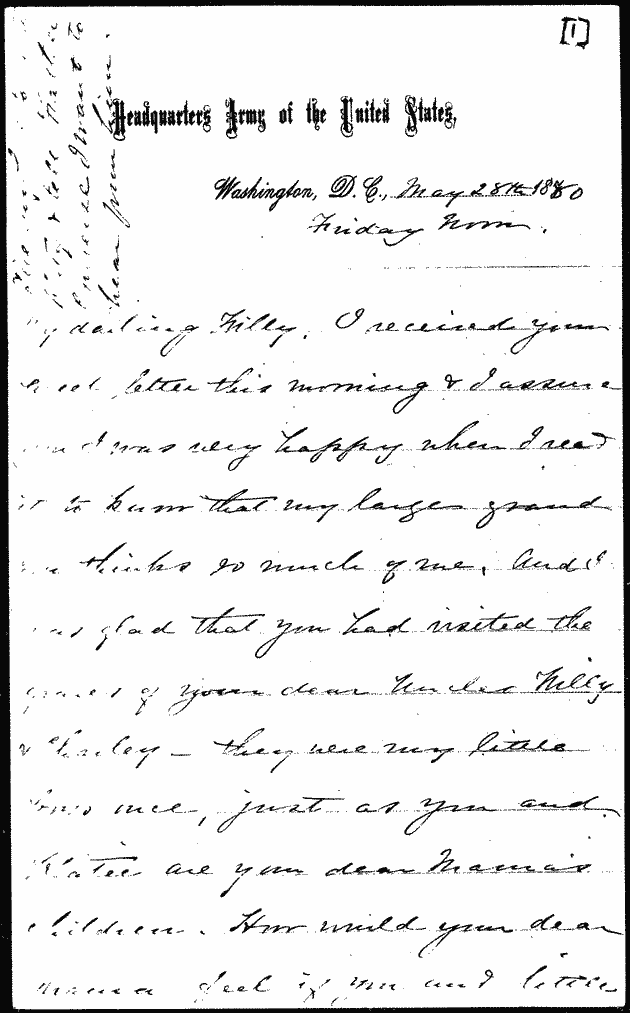 [1]
Headquarters Army of the United States,
Washington, D.C., May 28th 1880
Friday Noon.
My darling Willy, I received your
letter this morning & I assure
you I was very happy when I read
it to know that my large grand
son thinks so much of me. And I
was glad that you had visited the
graves of your dear Uncles Willy
& Charley - they were my little
boys once, just as you and
Katee are your dear Mama's
children. How would your dear
mama feel if you and little
tell
I want to
hear from him.